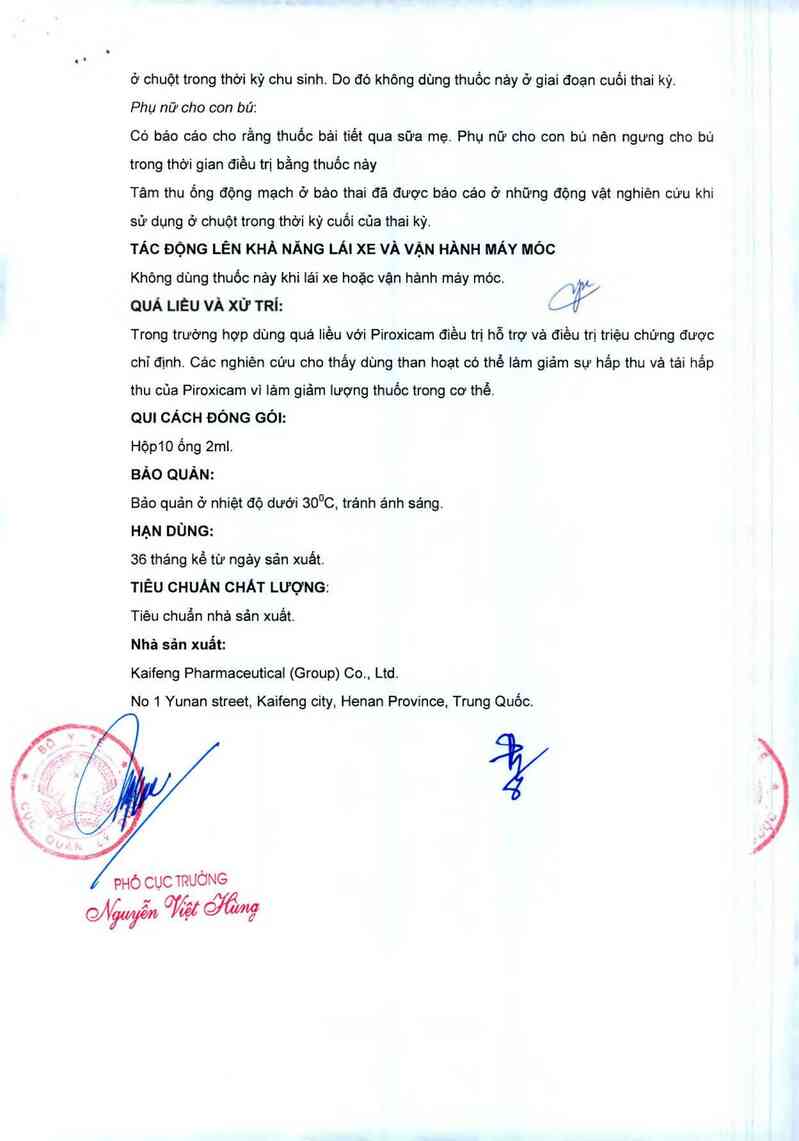 ở chuột trong thời kỳ chu sinh. Do đó không dùng thuốc này ở giai đoạn cuối thai kỳ.
Phụ nữ cho con bú:
Có báo cáo cho rằng thuốc bài tiết qua sữa mẹ. Phụ nữ cho con bú nên ngưng cho bú
trong thời gian điều trị bằng thuốc này
Tâm thu ống động mạch ở bào thai đã được báo cáo ở những động vật nghiên cứu khi
sử dụng ở chuột trong thời kỳ cuối của thai kỳ.
TÁC ĐỘNG LÊN KHẢ NĂNG LÁI XE VÀ VẬN HÀNH MÁY MÓC
Không dùng thuốc này khi lái xe hoặc vận hành máy móc.
QUÁ LIỀU VÀ XỬ TRÍ:
Trong trường hợp dùng quá liều với Piroxicam điều trị hỗ trợ và điều trị triệu chứng được
chỉ định. Các nghiên cứu cho thấy dùng than hoạt có thể làm giảm sự hấp thu và tái hấp
thu của Piroxicam vì làm giảm lượng thuốc trong cơ thể.
QUI CÁCH ĐÓNG GÓI:
Hộp10 ống 2ml.
BẢO QUẢN:
Bảo quản ở nhiệt độ dưới 30⁰C, tránh ánh sáng.
HẠN DÙNG:
36 tháng kể từ ngày sản xuất.
TIÊU CHUẨN CHẤT LƯỢNG:
Tiêu chuẩn nhà sản xuất.
Nhà sản xuất:
Kaifeng Pharmaceutical (Group) Co., Ltd.
No 1 Yunan street, Kaifeng city, Henan Province, Trung Quốc.
BỘ Y TẾ
CỤC QUẢN LÝ
PHÓ CỤC TRƯỞNG
Nguyễn Việt Hùng